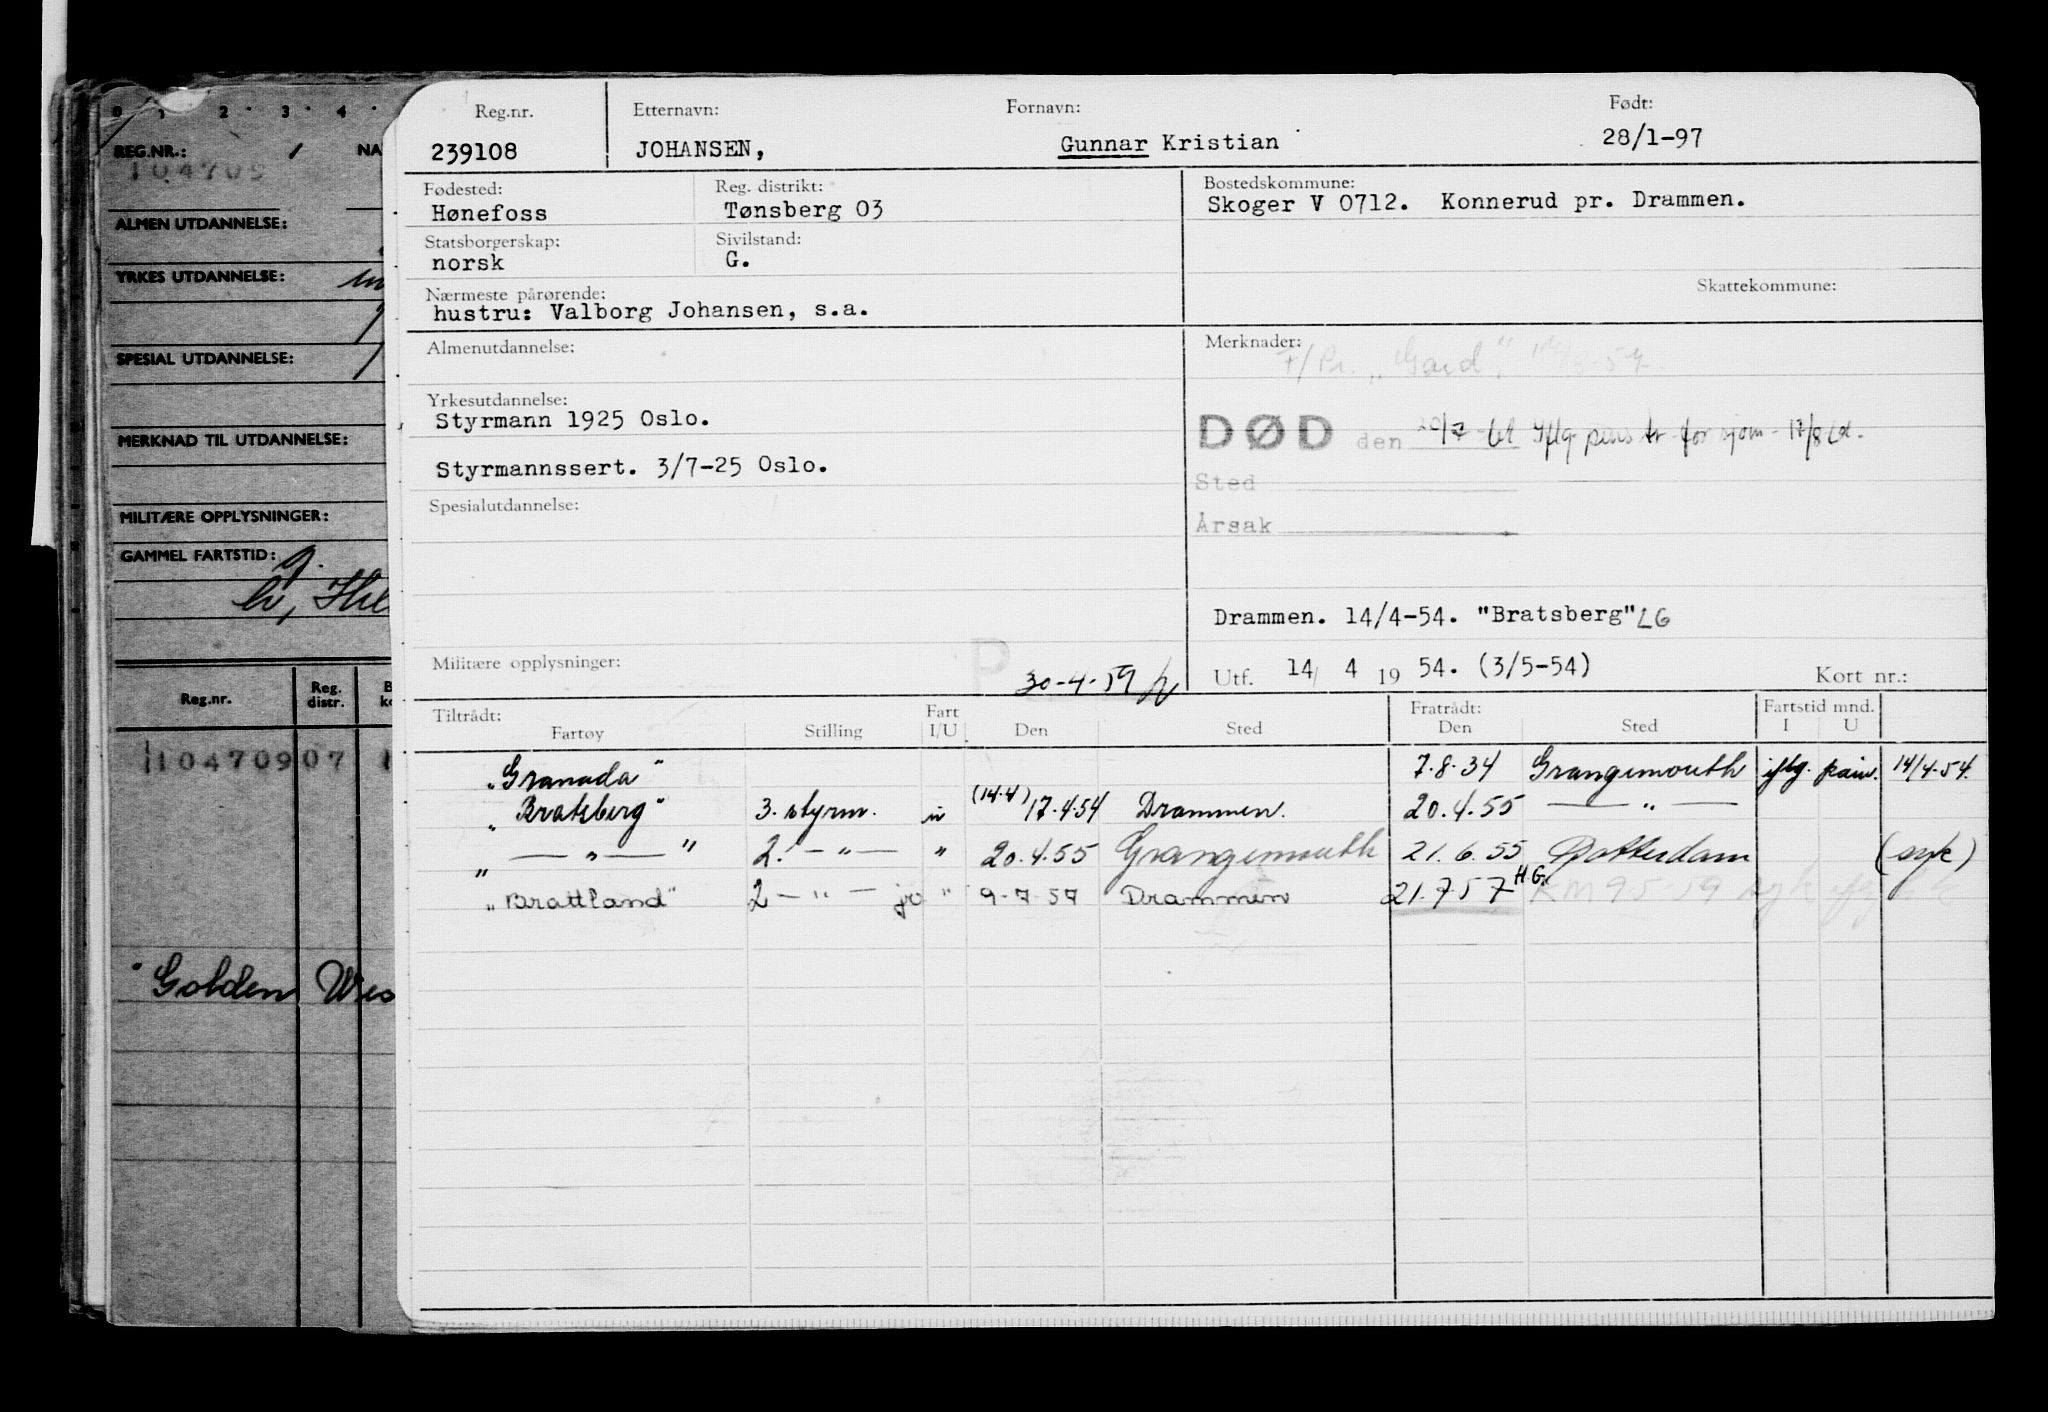 0 1 2 3 4
REG.NR.: NA
104709
ALMEN UTDANNELSE:
YRKES UTDANNELSE:
SPESIAL UTDANNELSE:
MERKNAD TIL UTDANNELSE:
MILITÆRE OPPLYSNINGER:
GAMMEL FARTSTID:
Reg.nr. Reg. distr.
110470907 1
"Golden Wes
Reg.nr. Etternavn: Fornavn: Født:
239108 JOHANSEN, Gunnar Kristian 28/1-97
Fødested: Reg. distrikt: Bostedskommune:
Hønefoss Tønsberg 03 Skoger V 0712. Konnerud pr. Drammen.
Statsborgerskap: Sivilstand:
norsk G.
Nærmeste pårørende: Skattekommune:
hustru: Valborg Johansen, s.a.
Almenutdannelse: Merknader:
Yrkesutdannelse:
Styrmann 1925 Oslo.
DØD den 20/7
Styrmannssert. 3/7-25 Oslo.
Sted
Spesialutdannelse:
Årsak
Drammen. 14/4-54. "Bratsberg" LG
Militære opplysninger: P 30-4-59
Utf. 14/ 4 19 54. (3/5-54) Kort nr.:
Tiltrådt: Fart Fratrådt: Fartstid mnd.
Fartøy Stilling I/U Den Sted Den Sted I U
"Granada" 7.8.34 Grangemouth iflg. pain. 14/4.54.
"Bratsberg" 3. styrm. u (14.4) 17.4.54 Drammen. 20.4.55 — " —
" — " — " 2. — " — " 20.4.55 Grangemouth 21.6.55 Rotterdam (syk)
"Brattland" 2 — " — jr " 9-7-57 Drammen 21.7.57 H.G. KM 9-5-59